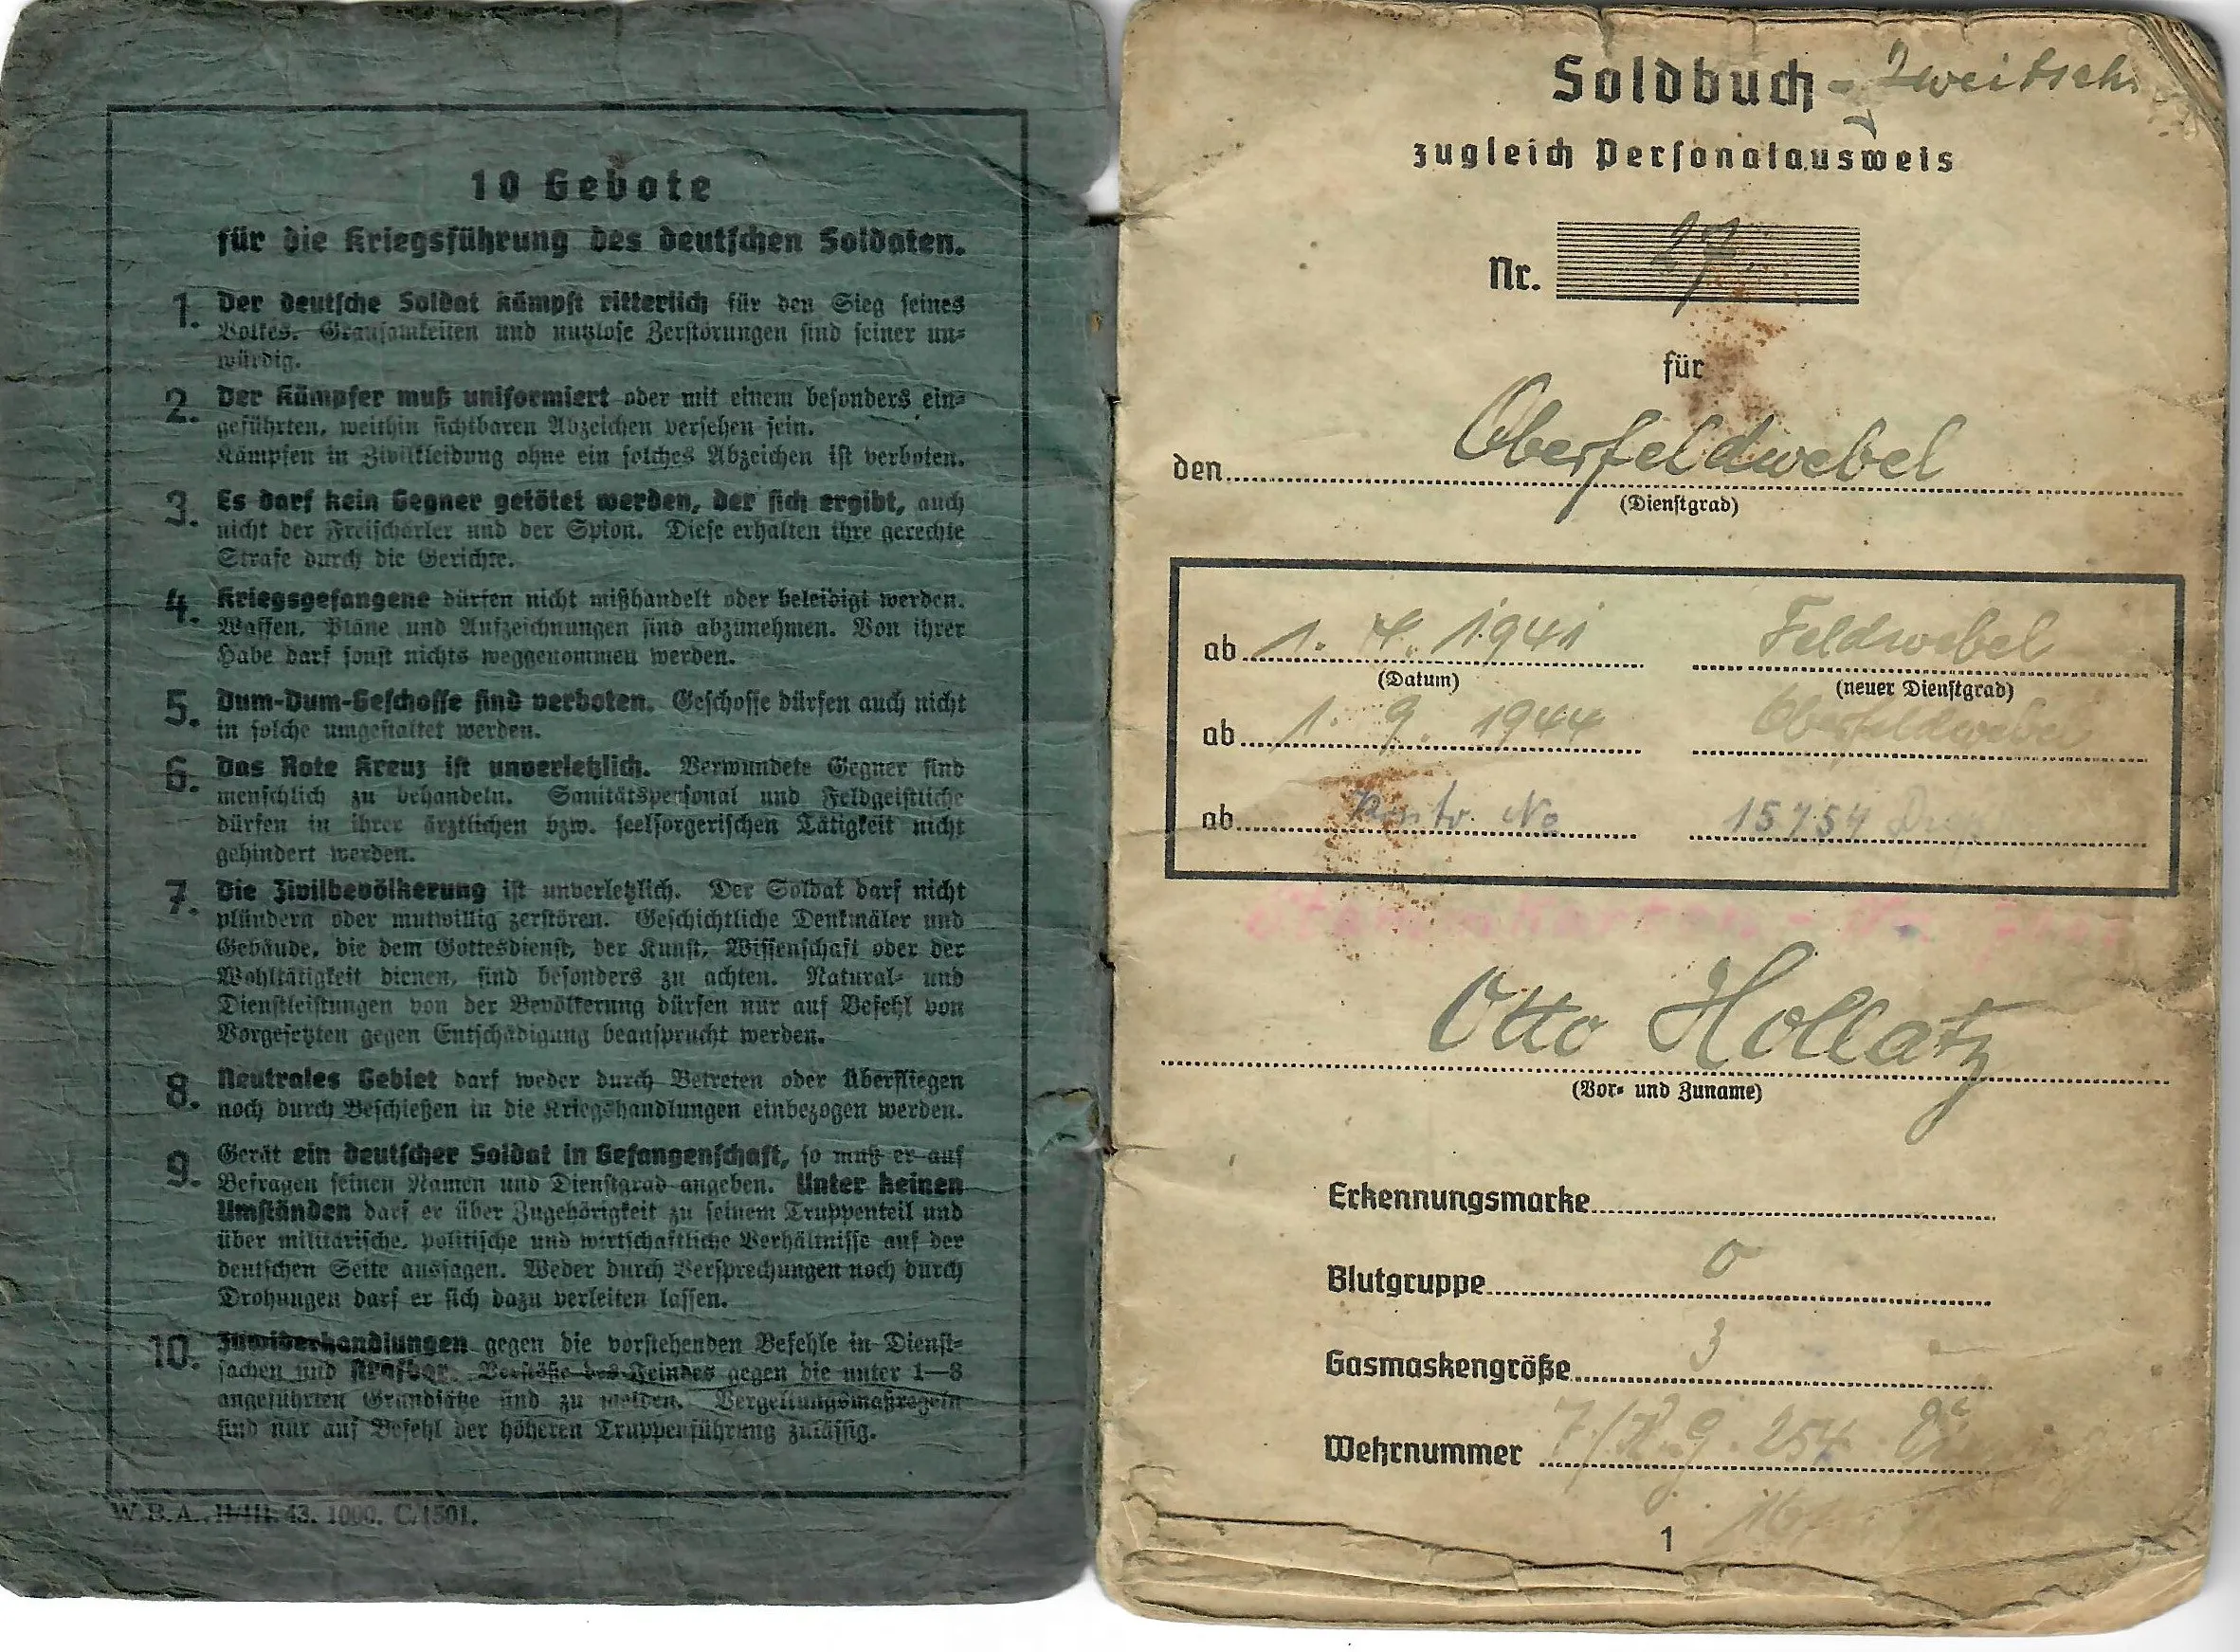 10 Gebote
für die Kriegsführung des deutschen Soldaten.
1. Der deutsche Soldat kämpft ritterlich für den Sieg seines
Volkes. Grausamkeiten und nutzlose Zerstörungen sind seiner un-
würdig.
2. Der Kämpfer muß uniformiert oder mit einem besonders ein-
geführten, weithin sichtbaren Abzeichen versehen sein.
Kämpfen in Zivilkleidung ohne ein solches Abzeichen ist verboten.
3. Es darf kein Gegner getötet werden, der sich ergibt, auch
nicht der Freischärler und der Spion. Diese erhalten ihre gerechte
Strafe durch die Gerichte.
4. Kriegsgefangene dürfen nicht mißhandelt oder beleidigt werden.
Waffen, Pläne und Aufzeichnungen sind abzunehmen. Von ihrer
Habe darf sonst nichts weggenommen werden.
5. Dum-Dum-Geschosse sind verboten. Geschosse dürfen auch nicht
in solche umgestaltet werden.
6. Das Rote Kreuz ist unverletzlich. Verwundete Gegner sind
menschlich zu behandeln. Sanitätspersonal und Feldgeistliche
dürfen in ihrer ärztlichen bzw. seelsorgerischen Tätigkeit nicht
gehindert werden.
7. Die Zivilbevölkerung ist unverletzlich. Der Soldat darf nicht
plündern oder mutwillig zerstören. Geschichtliche Denkmäler und
Gebäude, die dem Gottesdienst, der Kunst, Wissenschaft oder der
Wohltätigkeit dienen, sind besonders zu achten. Natural- und
Dienstleistungen von der Bevölkerung dürfen nur auf Befehl von
Vorgesetzten gegen Entschädigung beansprucht werden.
8. Neutrales Gebiet darf weder durch Betreten oder Überfliegen
noch durch Beschießen in die Kriegshandlungen einbezogen werden.
9. Gerät ein deutscher Soldat in Gefangenschaft, so muß er auf
Befragen seinen Namen und Dienstgrad angeben. Unter keinen
Umständen darf er über Zugehörigkeit zu seinem Truppenteil und
über militärische, politische und wirtschaftliche Verhältnisse auf der
deutschen Seite aussagen. Weder durch Versprechungen noch durch
Drohungen darf er sich dazu verleiten lassen.
10. Zuwiderhandlungen gegen die vorstehenden Befehle in Dienst-
sachen sind strafbar. Verstöße des Feindes gegen die unter 1—8
angeführten Grundsätze sind zu melden. Vergeltungsmaßregeln
sind nur auf Befehl der höheren Truppenführung zulässig.
W. B. A. II/III. 43. 1000. C/1501.
Soldbuch - Zweitschr
zugleich Personalausweis
Nr. 27.
für
den Oberfeldwebel
(Dienstgrad)
ab 1. 4. 1941 Feldwebel
(Datum) (neuer Dienstgrad)
ab 1. 9. 1944 Oberfeldwebel
ab No 15754
Otto Hollatz
(Vor- und Zuname)
Erkennungsmarke
Blutgruppe O
Gasmaskengröße 3
Wehrnummer 9. 254
1